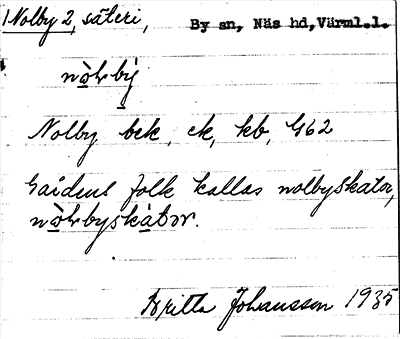 Nolby 2, säteri, By sn, Näs hd, Värml.l.
Nolby bek, ek, kb, G62
Gårdens folk kallas nolbyskator,
Britta Johansson 1935